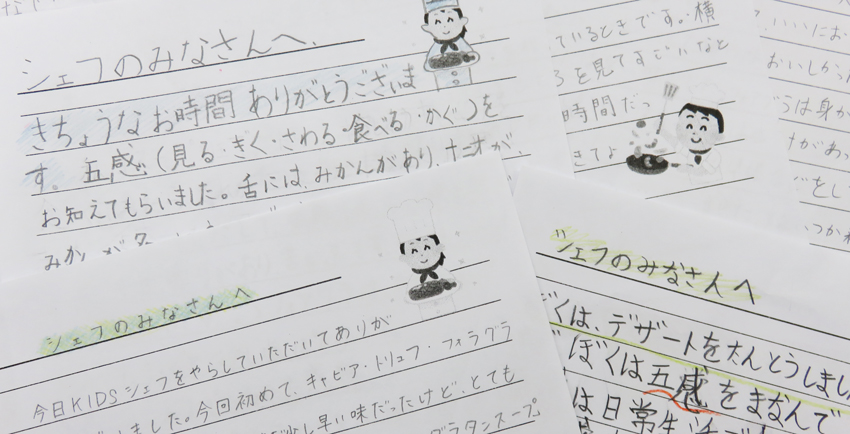 シェフのみなさんへ、
きちょうなお時間 ありがとうございま
す。五感(見る・きく・さわる・食べる・かぐ)を
お知えてもらいました。舌には、みかんがあり、十才が、
みか
ているときです。横
ろを見てすごいなと
時間だっ
きてよ
いいにお
おいしかっ
うは身か
けがあっ
をし
つかれ
シェフのみなさんへ
今日KIDSシェフをやらしていただいてありが
いました。今回初めて、キャビア・トリュフ・フォラグラ
少し早い味だったけど、とても
グラタンスープ
シェフのみなさんへ
ぼくは、デザートをたんとうしまし
ぼくは五感をまなんで
は日常生